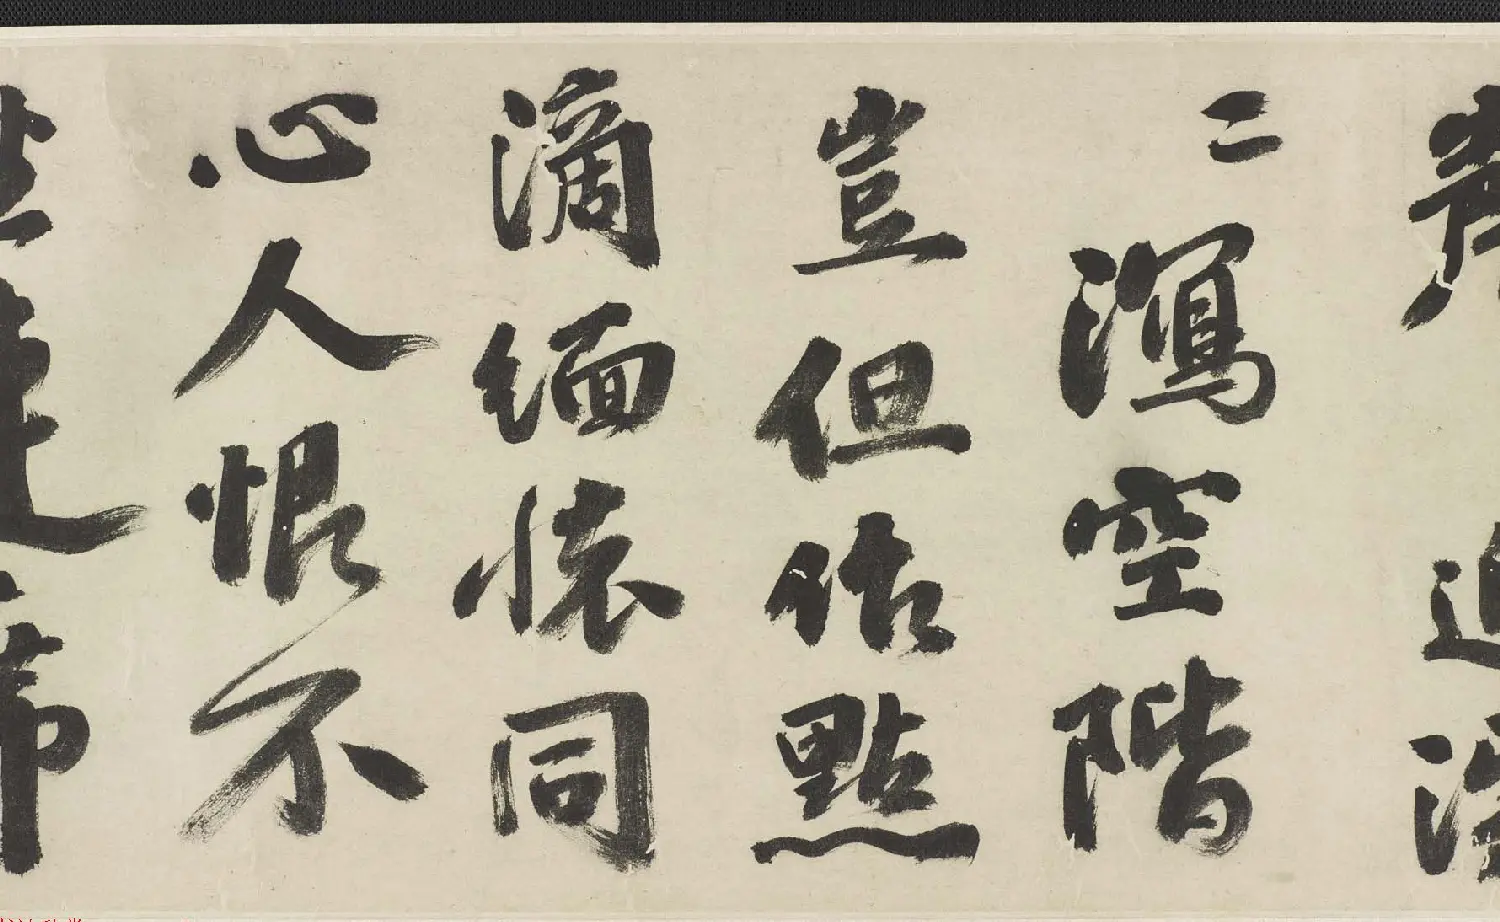 二瀉空階
豈但佔點
滴緬懷同
心人恨不